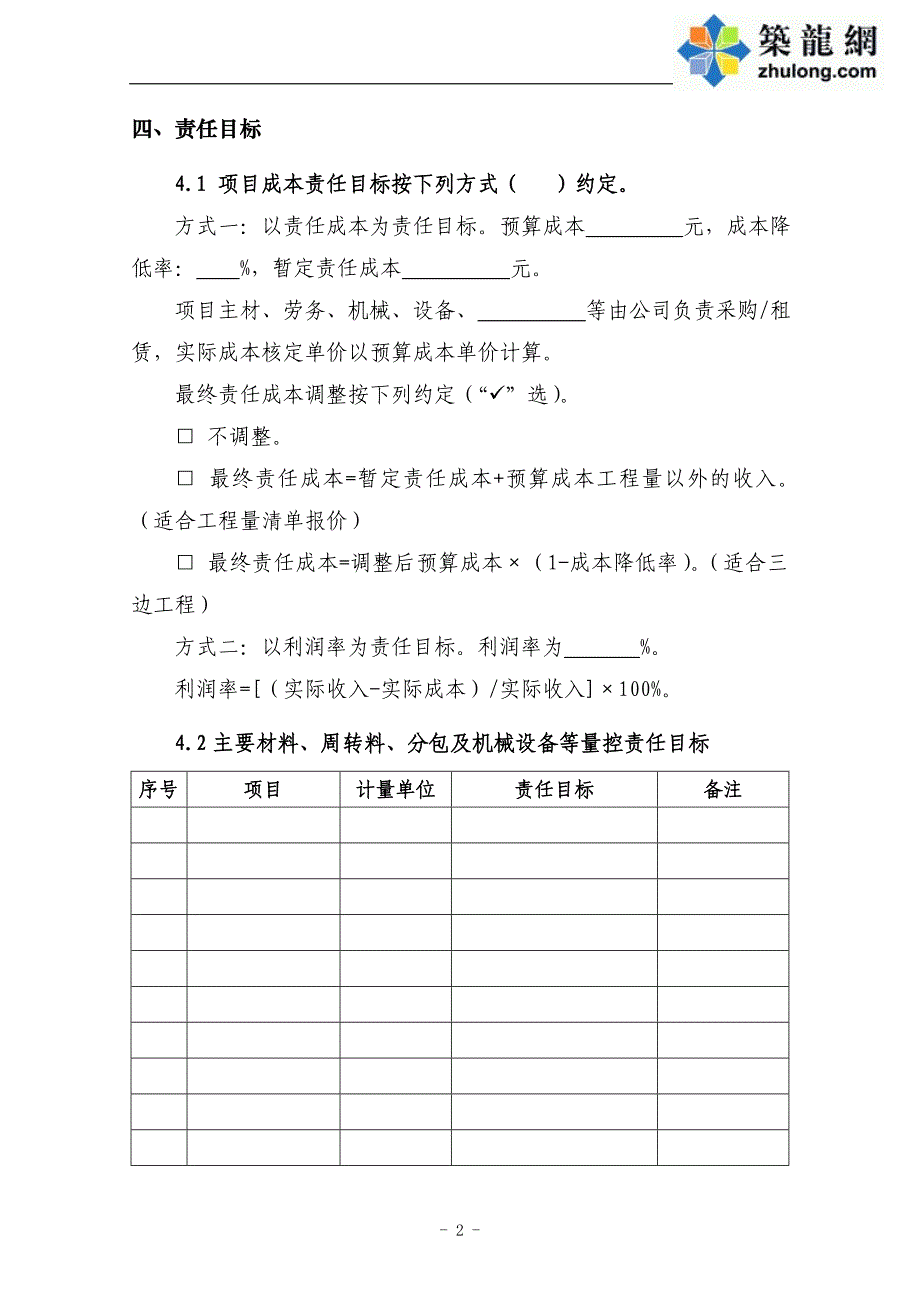 築龍網
zhulong.com
四、责任目标
4.1 项目成本责任目标按下列方式（　　）约定。
方式一：以责任成本为责任目标。预算成本_________元，成本降
低率：____%，暂定责任成本__________元。
项目主材、劳务、机械、设备、__________等由公司负责采购/租
赁，实际成本核定单价以预算成本单价计算。
最终责任成本调整按下列约定（“✓”选）。
□ 不调整。
□ 最终责任成本=暂定责任成本+预算成本工程量以外的收入。
（适合工程量清单报价）
□ 最终责任成本=调整后预算成本×（1-成本降低率）。（适合三
边工程）
方式二：以利润率为责任目标。利润率为_______%。
利润率=[（实际收入-实际成本）/实际收入]×100%。
4.2主要材料、周转料、分包及机械设备等量控责任目标
序号 项目 计量单位 责任目标 备注
- 2 -